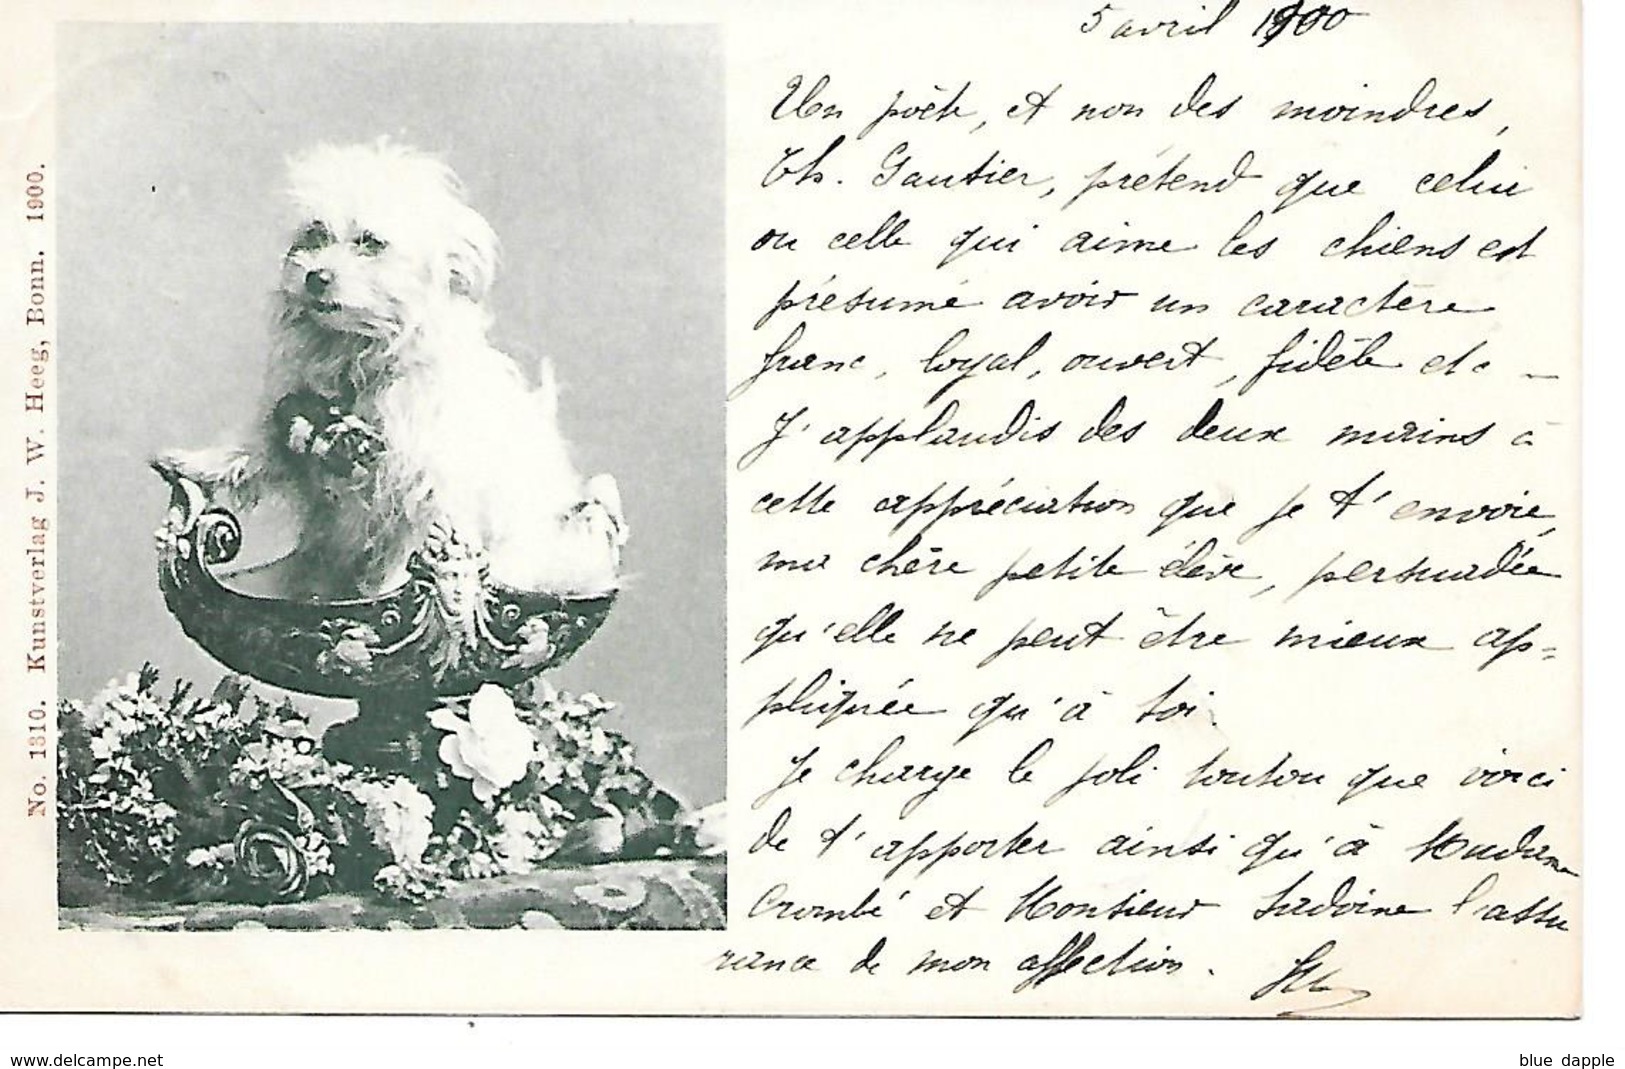 5 avril 1900
Un poète, et non des moindres,
Th. Gautier, prétend que celui
ou celle qui aime les chiens est
présumé avoir un caractère
franc, loyal, ouvert, fidèle etc –
J'applaudis des deux mains à
cette appréciation que je t'envoie,
ma chère petite élève, persuadée
qu'elle ne peut être mieux ap=
pliquée qu'à toi.
Je charge le joli toutou que voici
de t'apporter ainsi qu'à Madame
Crombé et Monsieur Sadoine l'assu
rance de mon affection.
No. 1310. Kunstverlag J. W. Heeg, Bonn. 1900.
www.delcampe.net
blue dapple